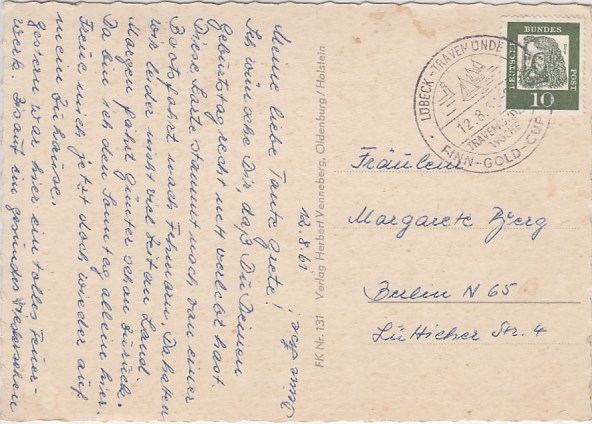 12.8.61
Meine liebe Tante Grete!
Ich wünsche Dir daß Du Deinen
Geburtstag recht nett verlebt hast.
Diese Karte stammt noch von einer
Bootsfahrt nach Fehmarn. Da hatten
wir leider nicht viel Zeit an Land.
Morgen fährt Günter schon zurück.
Da bin ich den Sonntag allein hier.
Freue mich jetzt doch wieder auf
mein Zuhause.
Gestern war hier ein tolles Feuer-
werk. Bis auf ein gesundes Wiedersehen
FK Nr. 131 Verlag Herbert Venneberg, Oldenburg / Holstein
LÜBECK-TRAVEMÜNDE
12.8.
TRAVEMÜNDER
WOCHE
FINN-GOLD-CUP
DEUTSCHE BUNDES POST
10
Fräulein
Margarete Bjerg
Berlin N 65
Lütticher Str. 4